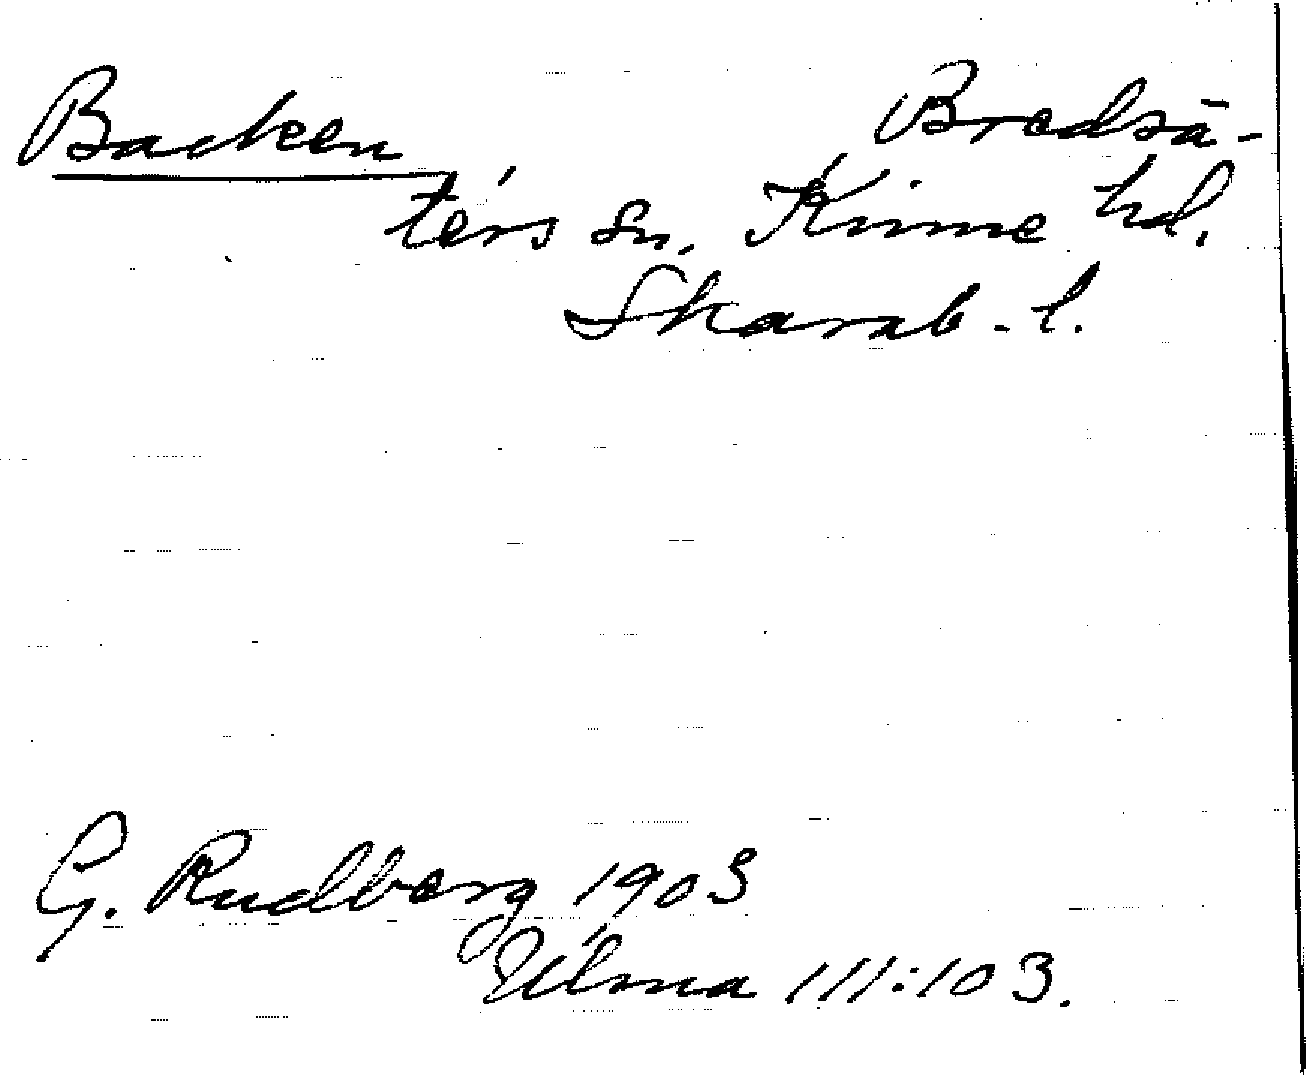 Backen Bredsä-
ters sn. Kinne hd.
Skarab. l.
G. Rudberg 1903
Ulma 111:103.